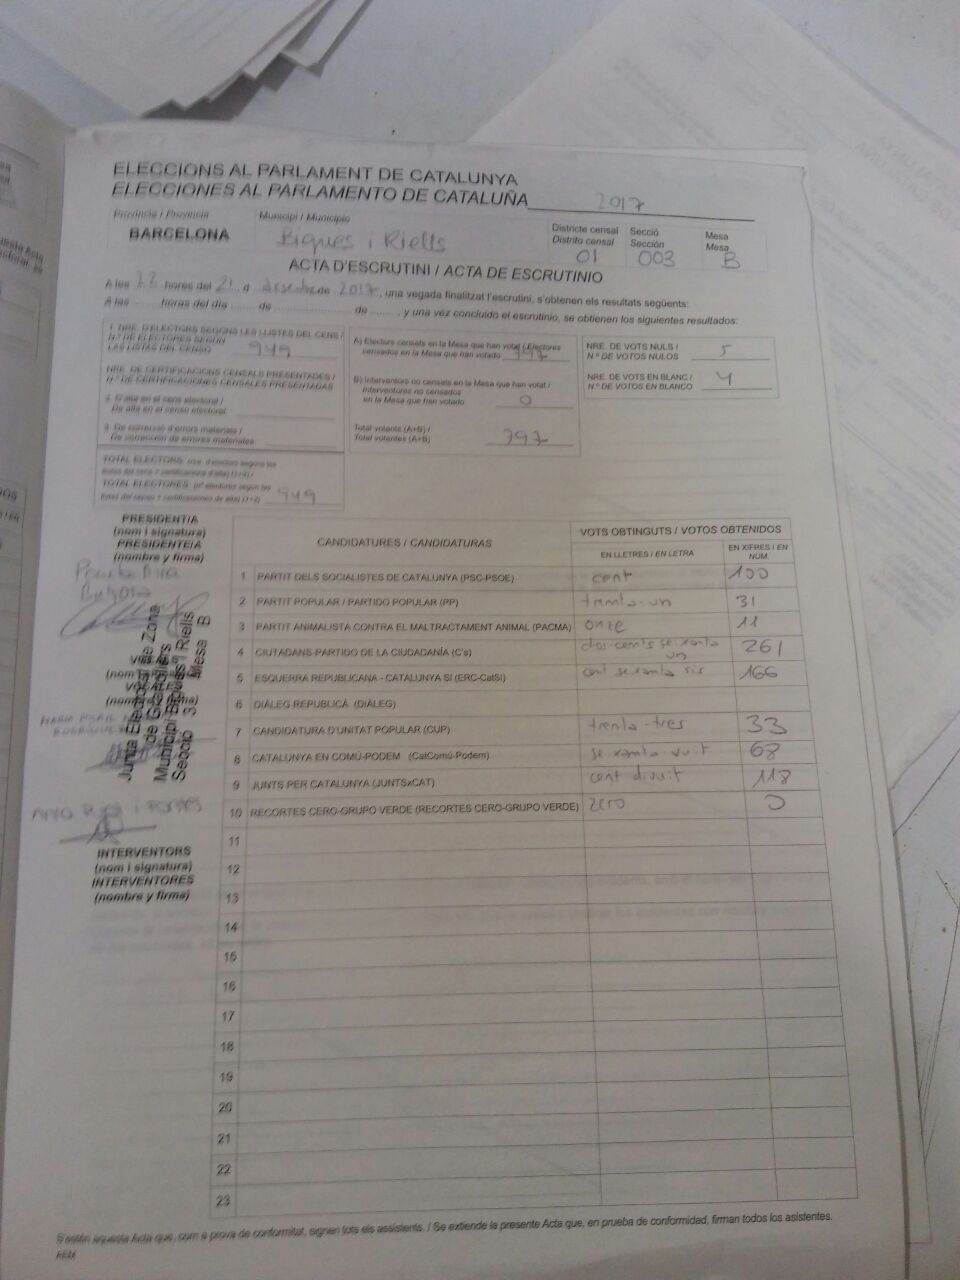 ELECCIONS AL PARLAMENT DE CATALUNYA
ELECCIONES AL PARLAMENTO DE CATALUÑA 2017
Província / Provincia
BARCELONA
Municipi / Municipio
Bigues i Riells
Districte censal
Distrito censal
01
Secció
Sección
003
Mesa
Mesa
B
ACTA D'ESCRUTINI / ACTA DE ESCRUTINIO
A les 22 hores del 21 d desembre de 2017, una vegada finalitzat l'escrutini, s'obtenen els resultats següents:
A las ........ horas del día ........ de ........ de ........, y una vez concluido el escrutinio, se obtienen los siguientes resultados:
1. NRE. D'ELECTORS SEGONS LES LLISTES DEL CENS /
N.º DE ELECTORES SEGÚN
LAS LISTAS DEL CENSO 949
NRE. DE CERTIFICACIONS CENSALS PRESENTADES /
N.º DE CERTIFICACIONES CENSALES PRESENTADAS
2. D'alta en el cens electoral /
De alta en el censo electoral
3. De correcció d'errors materials /
De corrección de errores materiales
TOTAL ELECTORS
TOTAL ELECTORES 949
A) Electors censats en la Mesa que han votat / Electores
censados en la Mesa que han votado 797
B) Interventors no censats en la Mesa que han votat /
Interventores no censados
en la Mesa que han votado 0
Total votants (A+B) /
Total votantes (A+B) 797
NRE. DE VOTS NULS /
N.º DE VOTOS NULOS 5
NRE. DE VOTS EN BLANC /
N.º DE VOTOS EN BLANCO 4
PRESIDENT/A
(nom i signatura)
PRESIDENTE/A
(nombre y firma)
Junta Electoral de Zona
de Granollers
Municipi Bigues i Riells
Secció 3 Mesa B
INTERVENTORS
(nom i signatura)
INTERVENTORES
(nombre y firma)
CANDIDATURES / CANDIDATURAS
VOTS OBTINGUTS / VOTOS OBTENIDOS
EN LLETRES / EN LETRA
EN XIFRES / EN NÚM.
1 PARTIT DELS SOCIALISTES DE CATALUNYA (PSC-PSOE) cent 100
2 PARTIT POPULAR / PARTIDO POPULAR (PP) trenta-un 31
3 PARTIT ANIMALISTA CONTRA EL MALTRACTAMENT ANIMAL (PACMA) onze 11
4 CIUTADANS-PARTIDO DE LA CIUDADANÍA (C's) dos-cents seixanta un 261
5 ESQUERRA REPUBLICANA - CATALUNYA SÍ (ERC-CatSí) cent seixanta sis 166
6 DIÀLEG REPUBLICÀ (DIÀLEG)
7 CANDIDATURA D'UNITAT POPULAR (CUP) trenta-tres 33
8 CATALUNYA EN COMÚ-PODEM (CatComú-Podem) seixanta-vuit 68
9 JUNTS PER CATALUNYA (JUNTSxCAT) cent divuit 118
10 RECORTES CERO-GRUPO VERDE (RECORTES CERO-GRUPO VERDE) zero 0
11
12
13
14
15
16
17
18
19
20
21
22
23
S'estén aquesta Acta que, com a prova de conformitat, signen tots els assistents. / Se extiende la presente Acta que, en prueba de conformidad, firman todos los asistentes.